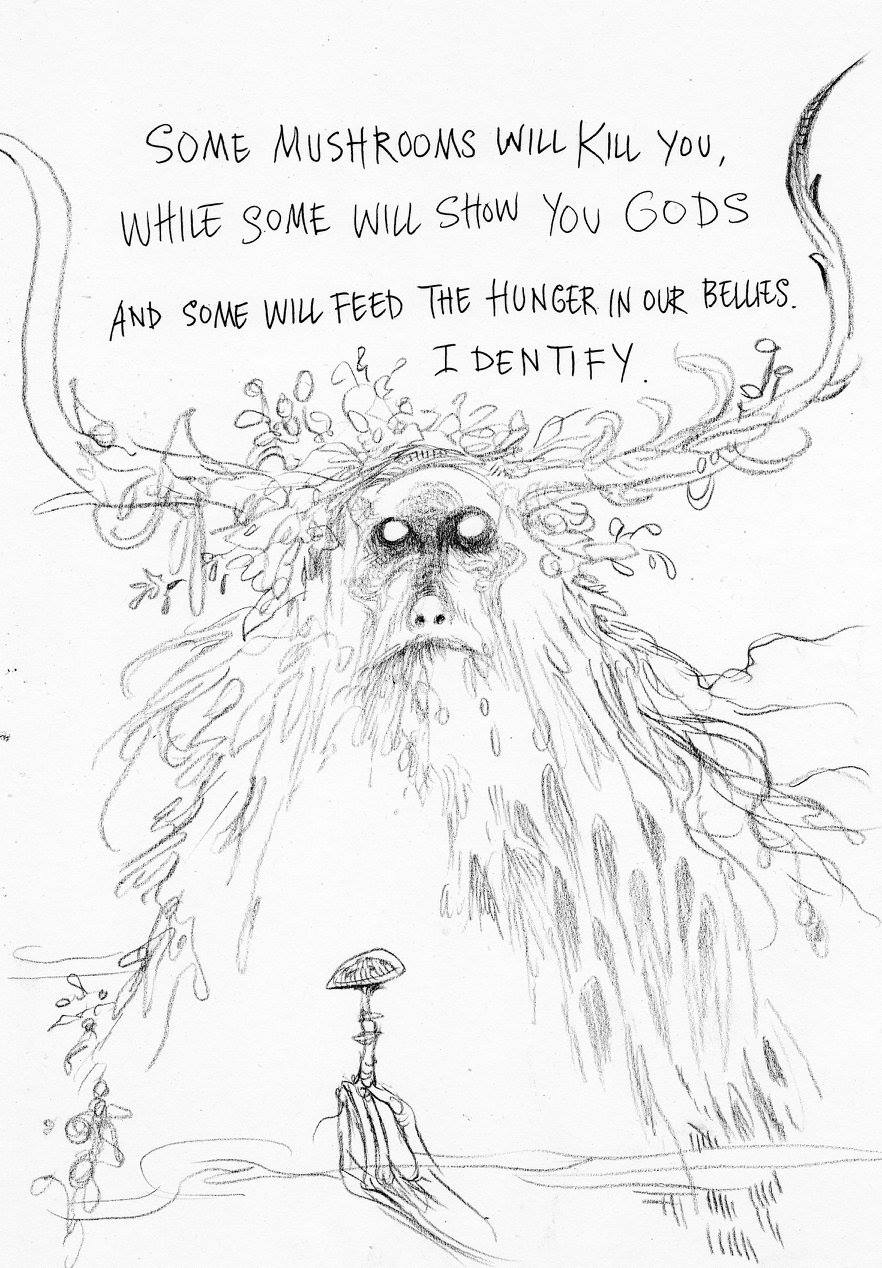 SOME MUSHROOMS WILL KILL YOU,
WHILE SOME WILL SHOW YOU GODS
AND SOME WILL FEED THE HUNGER IN OUR BELLIES.
IDENTIFY.